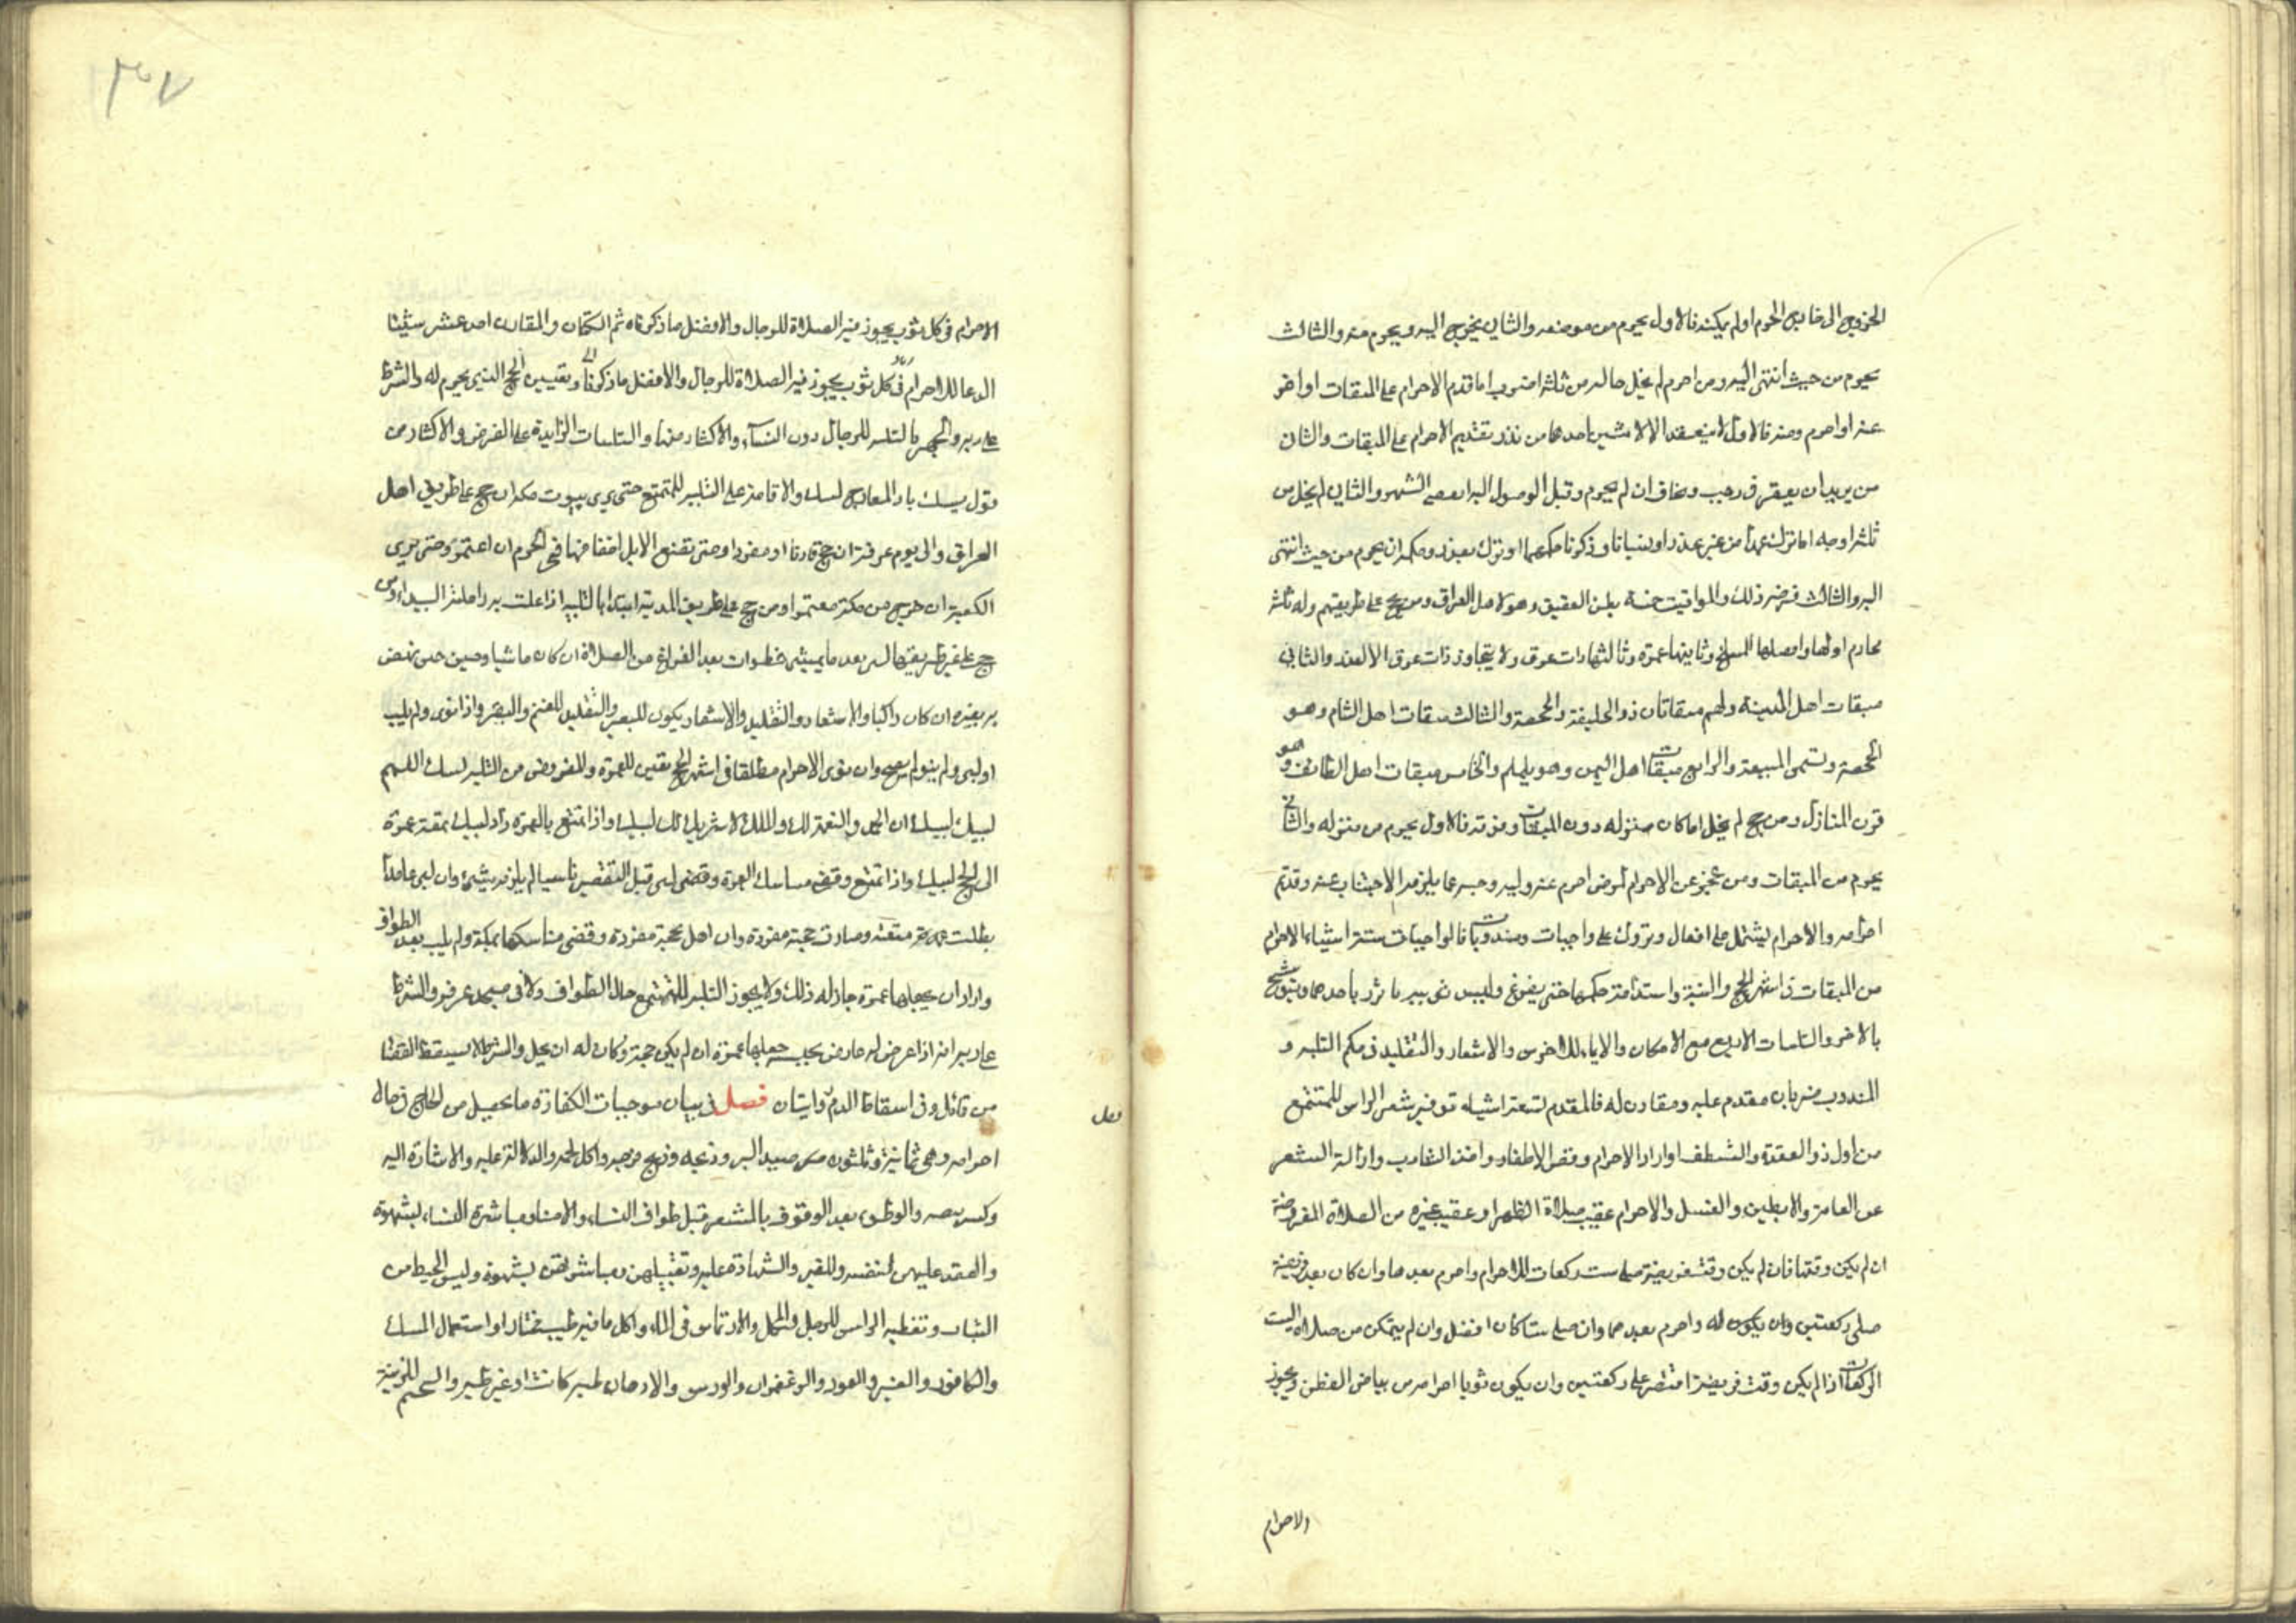 الخروج الى خارج الحرم او لم يمكنه فالاول يحرم من موضعه والثاني يخرج اليه ويحرم منه والثالث
يحرم من حيث انتهى اليه ومن احرم لم يخل حاله من ثلثة اضرب اما قدم الاحرام على الميقات او اخر
عنه او احرم منه فالاول لا ينعقد الا لاثنين احدهما من نذر تقديم الاحرام على الميقات والثاني
من يريد ان يعتمر في رجب وخاف ان لم يحرم قبل الوصول اليه انقضى الشهر والثاني لم يخل من
ثلثة اوجه اما ترك عمدا من غير عذر او نسيانا وذكرنا حكمهما او ترك بعذر وحكمه ان يحرم من حيث انتهى
اليه والثالث فرضه ذلك والمواقيت خمسة بطن العقيق وهو لاهل العراق ومن حج على طريقهم وله ثلثة
محارم اولها وافضلها المسلخ وثانيها غمرة وثالثها ذات عرق ولا يتجاوز ذات عرق الا لعذر والثاني
ميقات اهل المدينة ولهم ميقاتان ذو الحليفة والجحفة والثالث ميقات اهل الشام وهو
الجحفة وتسمى المهيعة والرابع ميقات اهل اليمن وهو يلملم والخامس ميقات اهل الطائف وهو
قرن المنازل ومن حج لم يخل اما كان منزله دون الميقات او فوقه فالاول يحرم من منزله والثاني
يحرم من الميقات ومن عجز عن الاحرام لمرض احرم عنه وليه وجنبه عما يلزمه الاجتناب عنه وقد تم
احرامه والاحرام يشتمل على افعال وتروك على واجبات ومندوبات فالواجبات ستة اشياء الاحرام
من الميقات في اشهر الحج والنية واستدامة حكمها حتى يفرغ ولبس ثوبين يأتزر بأحدهما ويتوشح
بالاخر والتلبيات الاربع مع الامكان والايماء للاخرس والاشعار والتقليد في حكم التلبية و
المندوب ضربان مقدم عليه ومقارن له فالمقدم تسعة اشياء توفير شعر الراس للمتمتع
من اول ذو القعدة والتنظف اذا اراد الاحرام وقص الاظفار واخذ الشارب وازالة الشعر
عن العانة والابطين والغسل والاحرام عقيب صلاة الظهر او عقيب غيره من الصلاة المفروضة
ان لم يكن وقتها فان لم يكن وقت فريضة صلى ست ركعات للاحرام واحرم بعدها وان كان بعد فريضة
صلى ركعتين وان يكون له واحرم بعدهما وان صلى ستا كان افضل وان لم يتمكن من صلاة الست
الركعات اذا لم يكن وقت فريضة اقتصر على ركعتين وان يكون ثوبا احرامه من بياض القطن ويجوز
والاحرام
٣٠٧
الاحرام في كل ثوب يجوز فيه الصلاة للرجال والافضل ما ذكرناه ثم الكتان والمقارن احد عشر شيئا
الدعا للاحرام في كل ثوب يجوز فيه الصلاة للرجال والافضل ما ذكرنا وتعيين الحج الذي يحرم له والشرط
على ربه والجهر بالتلبية للرجال دون النساء والاكثار منها والتلبيات الزايدة على الفرض والاكثار من
قول لبيك يا ذا المعارج لبيك والاقامة على التلبية للمتمتع حتى يرى بيوت مكة ان حج على طريق اهل
العراق والى يوم عرفة ان حج قارنا او مفردا وحتى تضع الابل اخفافها في الحرم ان اعتمر وحتى يرى
الكعبة ان خرج من مكة معتمرا ومن حج على طريق المدينة ابتدا بالتلبية اذا علت به راحلته البيداء ومن
حج على غير طريقها لبى بعد ما يمشي خطوات بعد الفراغ من الصلاة ان كان ماشيا وحين حتى نهض
به بعيره ان كان راكبا والاشعار والتقليد والاشعار يكون للبعير والتقليد للغنم والبقر واذا نوى ولم يلب
او لبى ولم ينو لم يصح وان نوى الاحرام مطلقا في اشهر الحج تعين للعمرة والمفروض من التلبية لبيك اللهم
لبيك لبيك ان الحمد والنعمة لك والملك لا شريك لك لبيك واذا تمتع بالعمرة زاد لبيك بمتعة عمرة
الى الحج لبيك واذا تمتع وقضى مناسك العمرة وقضى لبى قبل التقصير ناسيا لم يلزمه شيئ وان لبى عامدا
بطلت عمرته متعته وصارت حجته مفردة وان اهل بحجة مفردة وقضى مناسكها بمكة ولم يلب بعد الطواف
واراد ان يجعلها عمرة جاز له ذلك ولا يجوز التلبية للمتمتع حال الطواف ولا في مسجد عرفة والشرط
على ربه انه اذا عرض له عارض يحبسه جعلها عمرة ان لم يكن حجة وكان له ان يحل والشرط لا يسقط القضا
من قابل وفي اسقاط الدم روايتان فصل في بيان موجبات الكفارة ما يحصل من الحاج في حال
احرامه وهي ثمانية وثلثون صيد البر وذبحه وذبح فرخه واكل لحمه والدلالة عليه والاشارة اليه
وكسر بيضه والوطوء بعد الوقوف بالمشعر قبل طواف النساء والامناء ومباشرة النساء بشهوة
والعقد عليهن لنفسه وللغير والشهادة عليه وتقبيلهن ومباشرتهن بشهوة ولبس المخيط من
الثياب وتغطية الراس للرجل والمحمل والارتماس في الماء واكل ما فيه طيب مختارا واستعمال المسك
والكافور والعنبر والعود والزعفران والورس والادهان طيبة كانت او غير طيبة للزينة